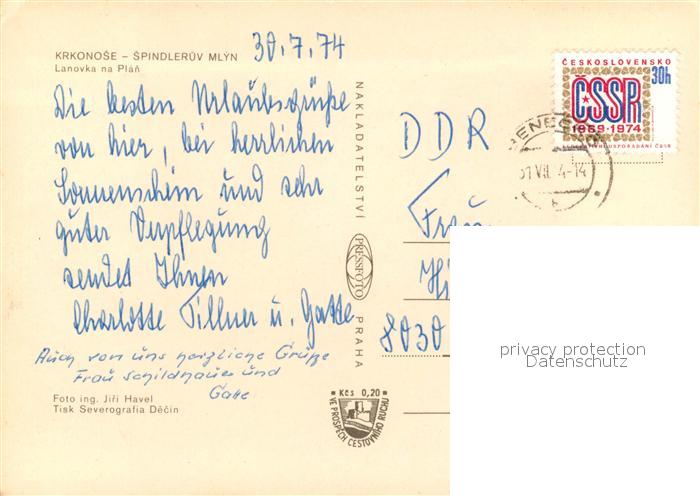 KRKONOŠE – ŠPINDLERŮV MLÝN
Lanovka na Pláň
30.7.74
Die besten Urlaubsgrüße
von hier, bei herrlichen
Sonnenschein und sehr
guter Verpflegung
sendet Ihnen
Charlotte Tillner u. Gatte
Auch von uns herzliche Grüße
Frau Schildhauer und
Gatte
Foto ing. Jiří Havel
Tisk Severografia Děčín
NAKLADATELSTVÍ
PRESSFOTO
PRAHA
Kčs 0,20
VE PROSPĚCH CESTOVNÍHO RUCHU
ČESKOSLOVENSKO
30h
ČSSR
1969-1974
USPOŘÁDÁNÍ ČSSR
VII. 4-14
DDR
Frau
Hi
8030
privacy protection
Datenschutz